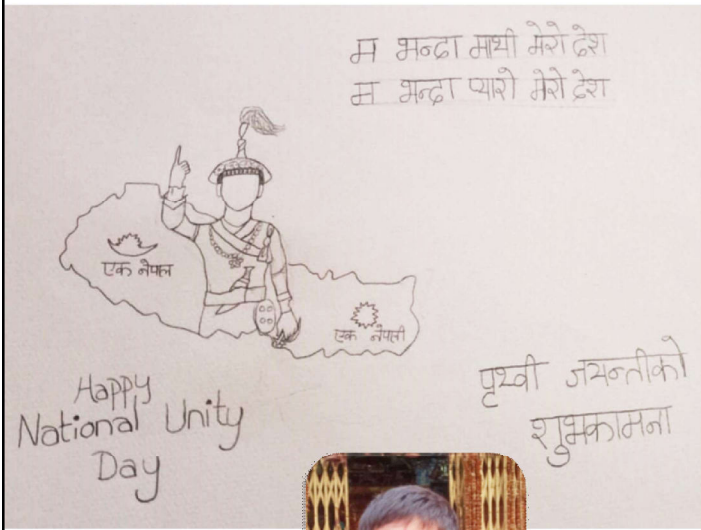 म भन्दा माथी मेरो देश
म भन्दा प्यारो मेरो देश
एक नेपाल
एक नेपाली
Happy
National Unity
Day
पृथ्वी जयन्तीको
शुभकामना